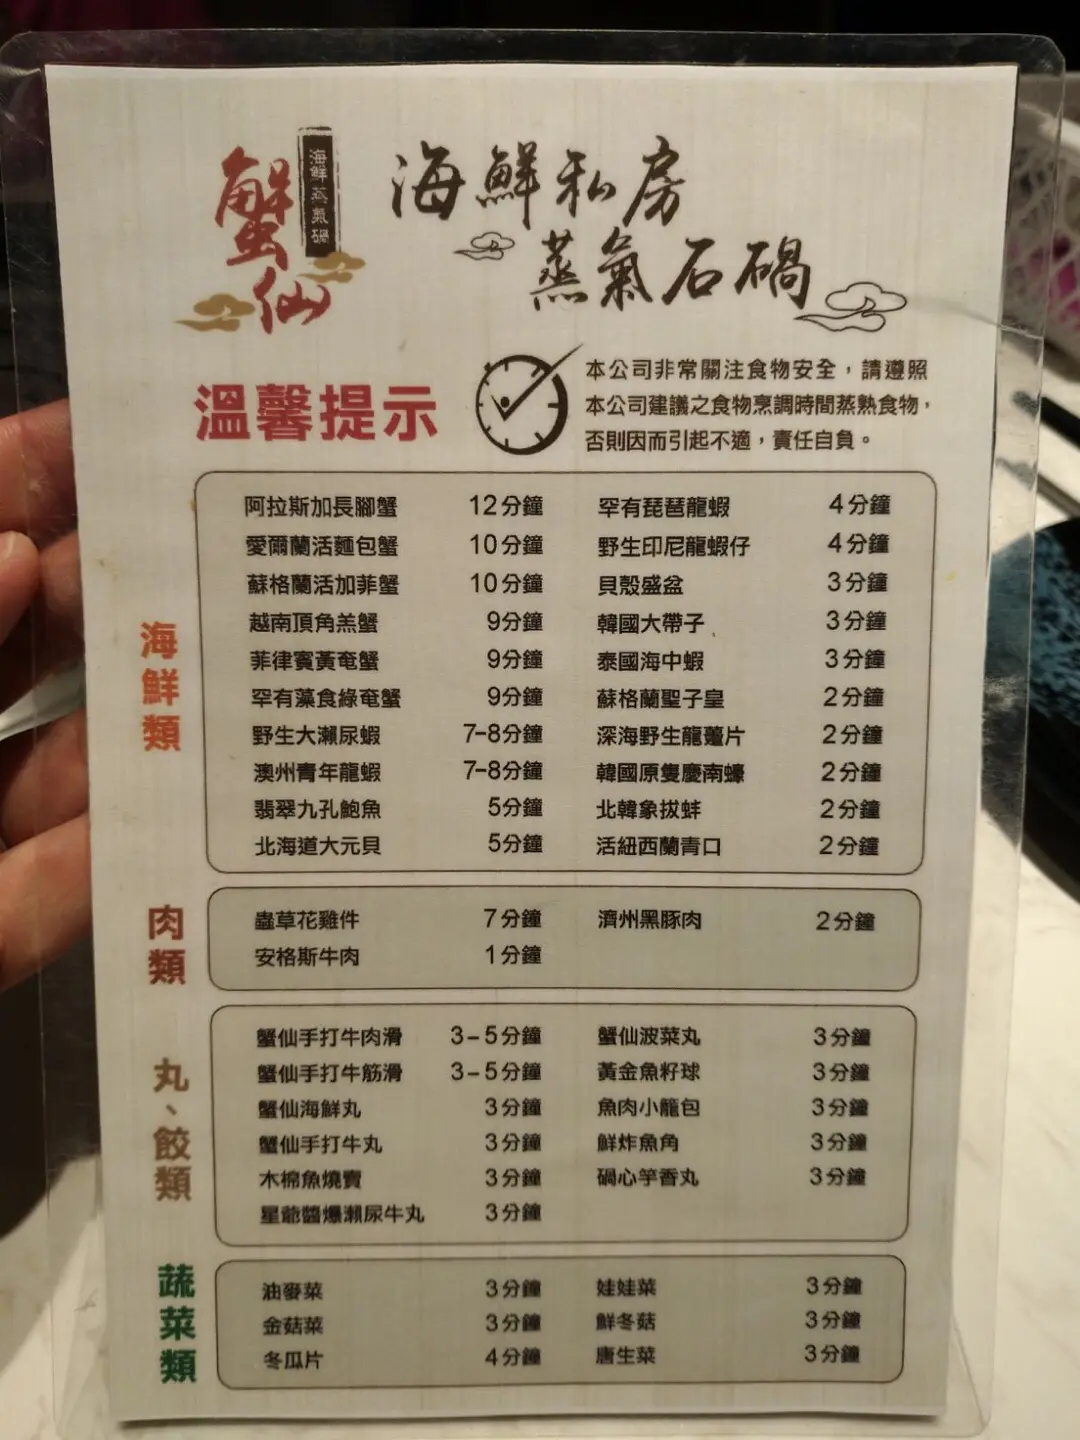 蟹仙
海鮮蒸氣鍋
海鮮私房
蒸氣石鍋
溫馨提示
本公司非常關注食物安全，請遵照
本公司建議之食物烹調時間蒸熟食物，
否則因而引起不適，責任自負。
海鮮類
阿拉斯加長腳蟹 12分鐘 罕有琵琶龍蝦 4分鐘
愛爾蘭活麵包蟹 10分鐘 野生印尼龍蝦仔 4分鐘
蘇格蘭活加菲蟹 10分鐘 貝殼盛盆 3分鐘
越南頂角羔蟹 9分鐘 韓國大帶子 3分鐘
菲律賓黃奄蟹 9分鐘 泰國海中蝦 3分鐘
罕有藻食綠奄蟹 9分鐘 蘇格蘭聖子皇 2分鐘
野生大瀨尿蝦 7-8分鐘 深海野生龍躉片 2分鐘
澳州青年龍蝦 7-8分鐘 韓國原隻慶南蠔 2分鐘
翡翠九孔鮑魚 5分鐘 北韓象拔蚌 2分鐘
北海道大元貝 5分鐘 活紐西蘭青口 2分鐘
肉類
蟲草花雞件 7分鐘 濟州黑豚肉 2分鐘
安格斯牛肉 1分鐘
丸、餃類
蟹仙手打牛肉滑 3-5分鐘 蟹仙波菜丸 3分鐘
蟹仙手打牛筋滑 3-5分鐘 黃金魚籽球 3分鐘
蟹仙海鮮丸 3分鐘 魚肉小籠包 3分鐘
蟹仙手打牛丸 3分鐘 鮮炸魚角 3分鐘
木棉魚燒賣 3分鐘 鍋心竽香丸 3分鐘
星爺醬爆瀨尿牛丸 3分鐘
蔬菜類
油麥菜 3分鐘 娃娃菜 3分鐘
金菇菜 3分鐘 鮮冬菇 3分鐘
冬瓜片 4分鐘 唐生菜 3分鐘